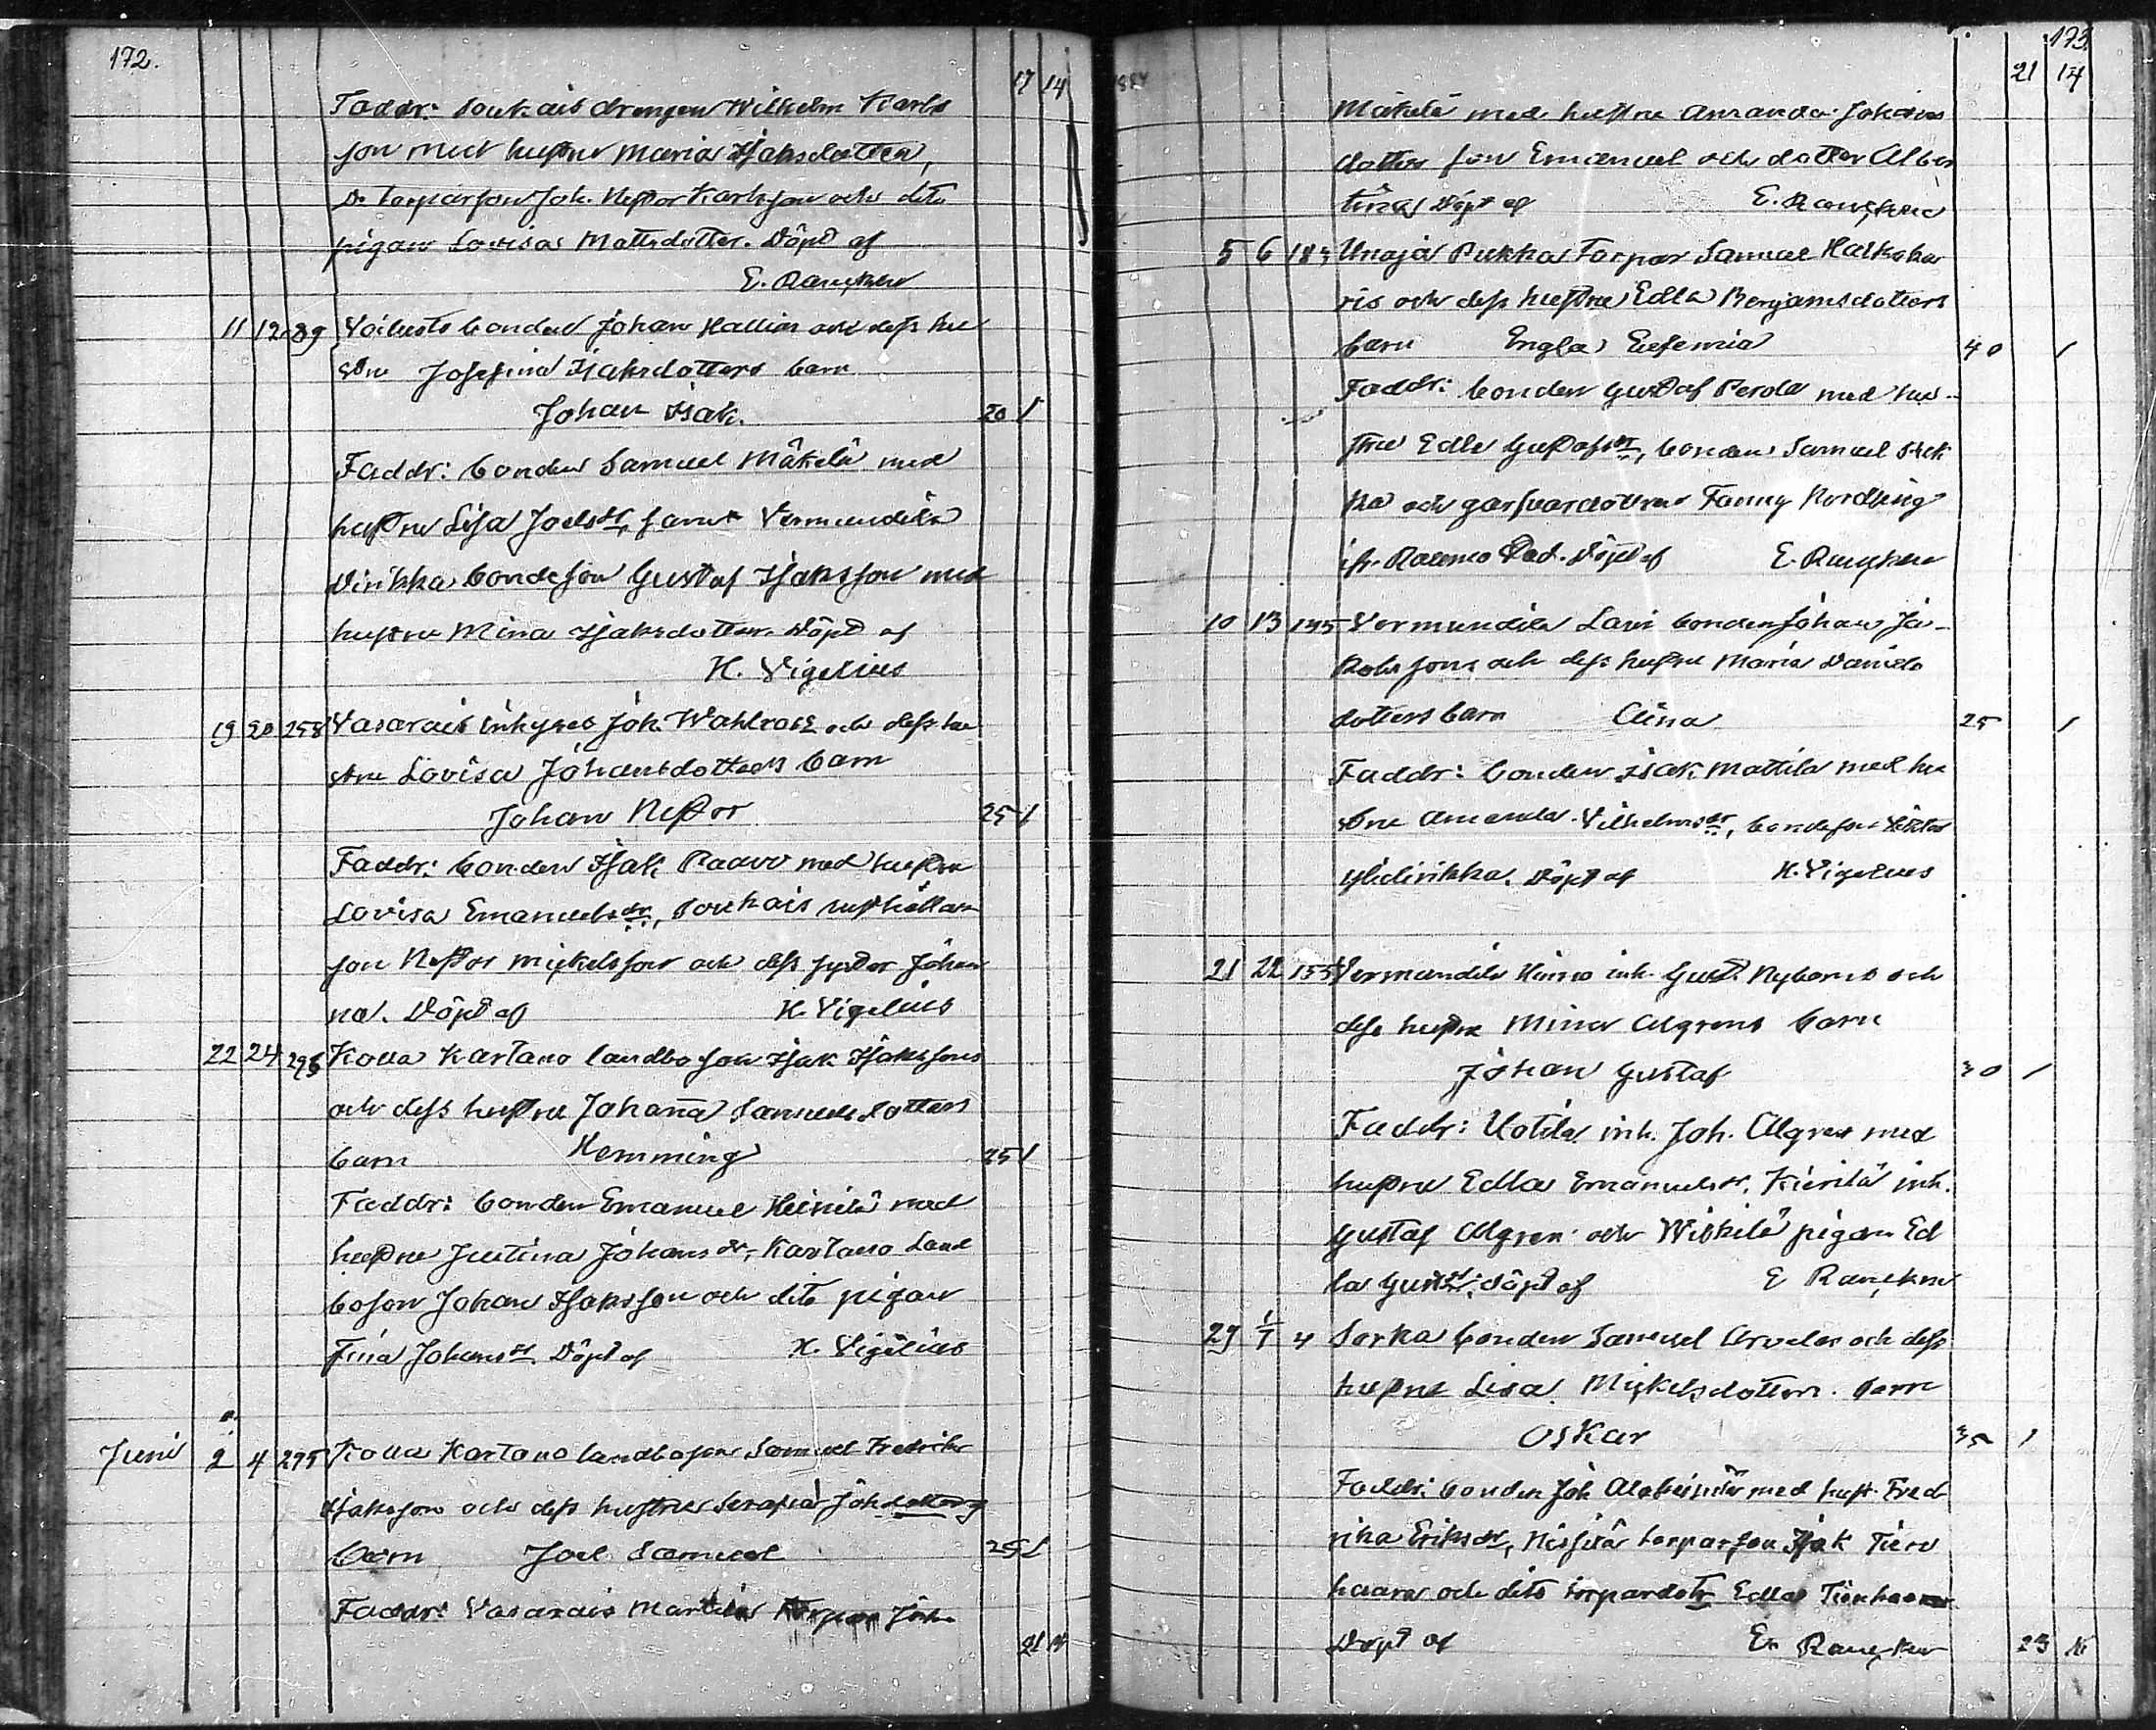 172.
17 14
Faddr: Soukais drengen Wilhelm Karls
son med hustru Maria Isaksdotter,
Do torparson Joh. Nestor Karlsson och dito
pigan Lovisa Mattsdotter. Döpt af
E. Rancken
11 12 89 bonden Johan Hallin och dess hu
stru Josefina Isaksdotters barn
Johan Isak. 20 1
Faddr: bonden Samuel Mäkelä med
hustru Lisa Joelsdr, samt Vermundila
bondeson Gustaf Isaksson med
hustru Mina Isaksdotter. Döpt af
H. Vigelius
19 20 258 Vasarais inhyses Joh. Wahlroos och dess hu
stru Lovisa Johansdotters barn
Johan Nestor 25 1
Faddr: bonden Isak Paavo med hustru
Lovisa Emanuelsdr, Soukais
son Nestor Mickelsson och dess syster Johan
na. Döpt af H. Vigelius
22 24 296 Kolla Kartano landboson Isak Isakssons
och dess hustru Johanna Samuelsdotters
barn Hemming 25 1
Faddr: bonden Emanuel Heinilä med
hustru Justina Johansdr, Kartano Land
boson Johan Isaksson och dito pigan
Fina Johansdr Döpt af H. Vigelius
Juni 2 4 295 Kolla Kartano landboson Samuel Fredrik
Isaksson och dess hustrus Serafia Johdotters
barn Joel Samuel 25 1
Faddr: Vasarais Martila torpar Joh.
21 14
173.
21 14
Mäkelä med hustru Amanda Johans
dotter son Emanuel och dotter Alber
tina Döpt af E. Rancken
5 6 183 Unaja Pukka Torpar Samuel Halkoka
ris och dess hustru Edla Benjamsdotters
barn Engla Eufemia 40 1
Faddr: bonden Gustaf Perola med hu-
stru Edla Gustafsdr, bonden Samuel
ka och garfvardottren Fanny Nordling
ifr. Raumo stad. Döpt af E. Rancken
10 13 155 Vermundila Lassi bonden Johan Ja-
kobssons och dess hustru Maria Daniels
dotters barn Aina 25 1
Faddr: bonden Isak Mattila med hu
stru Amanda Vilhelmsdr, bondeson Viktor
Ylidirikka. Döpt af H. Vigelius
21 22 155 Vermundila Himo inh. Gust. Nyboms och
dess hustru Mina Algrens barn
Johan Gustaf 30 1
Faddr: Uotila inh. Joh. Algren med
hustru Edla Emanuelsdr. Kierilä inh.
Gustaf Algren och Wiskilä pigan Ed
la Gustdr. döpt af E Rancken
29 1/7 4 Sorka bonden Samuel Arvelas och dess
hustru Lisa Mickelsdotters barn
Oskar 35 1
Faddr: bonden Joh med hust. Fred
rika Eriksdr, torparson Isak Tien
haara och dito torpardotr Edla Tienhaara
Döpt af E. Rancken
23 16